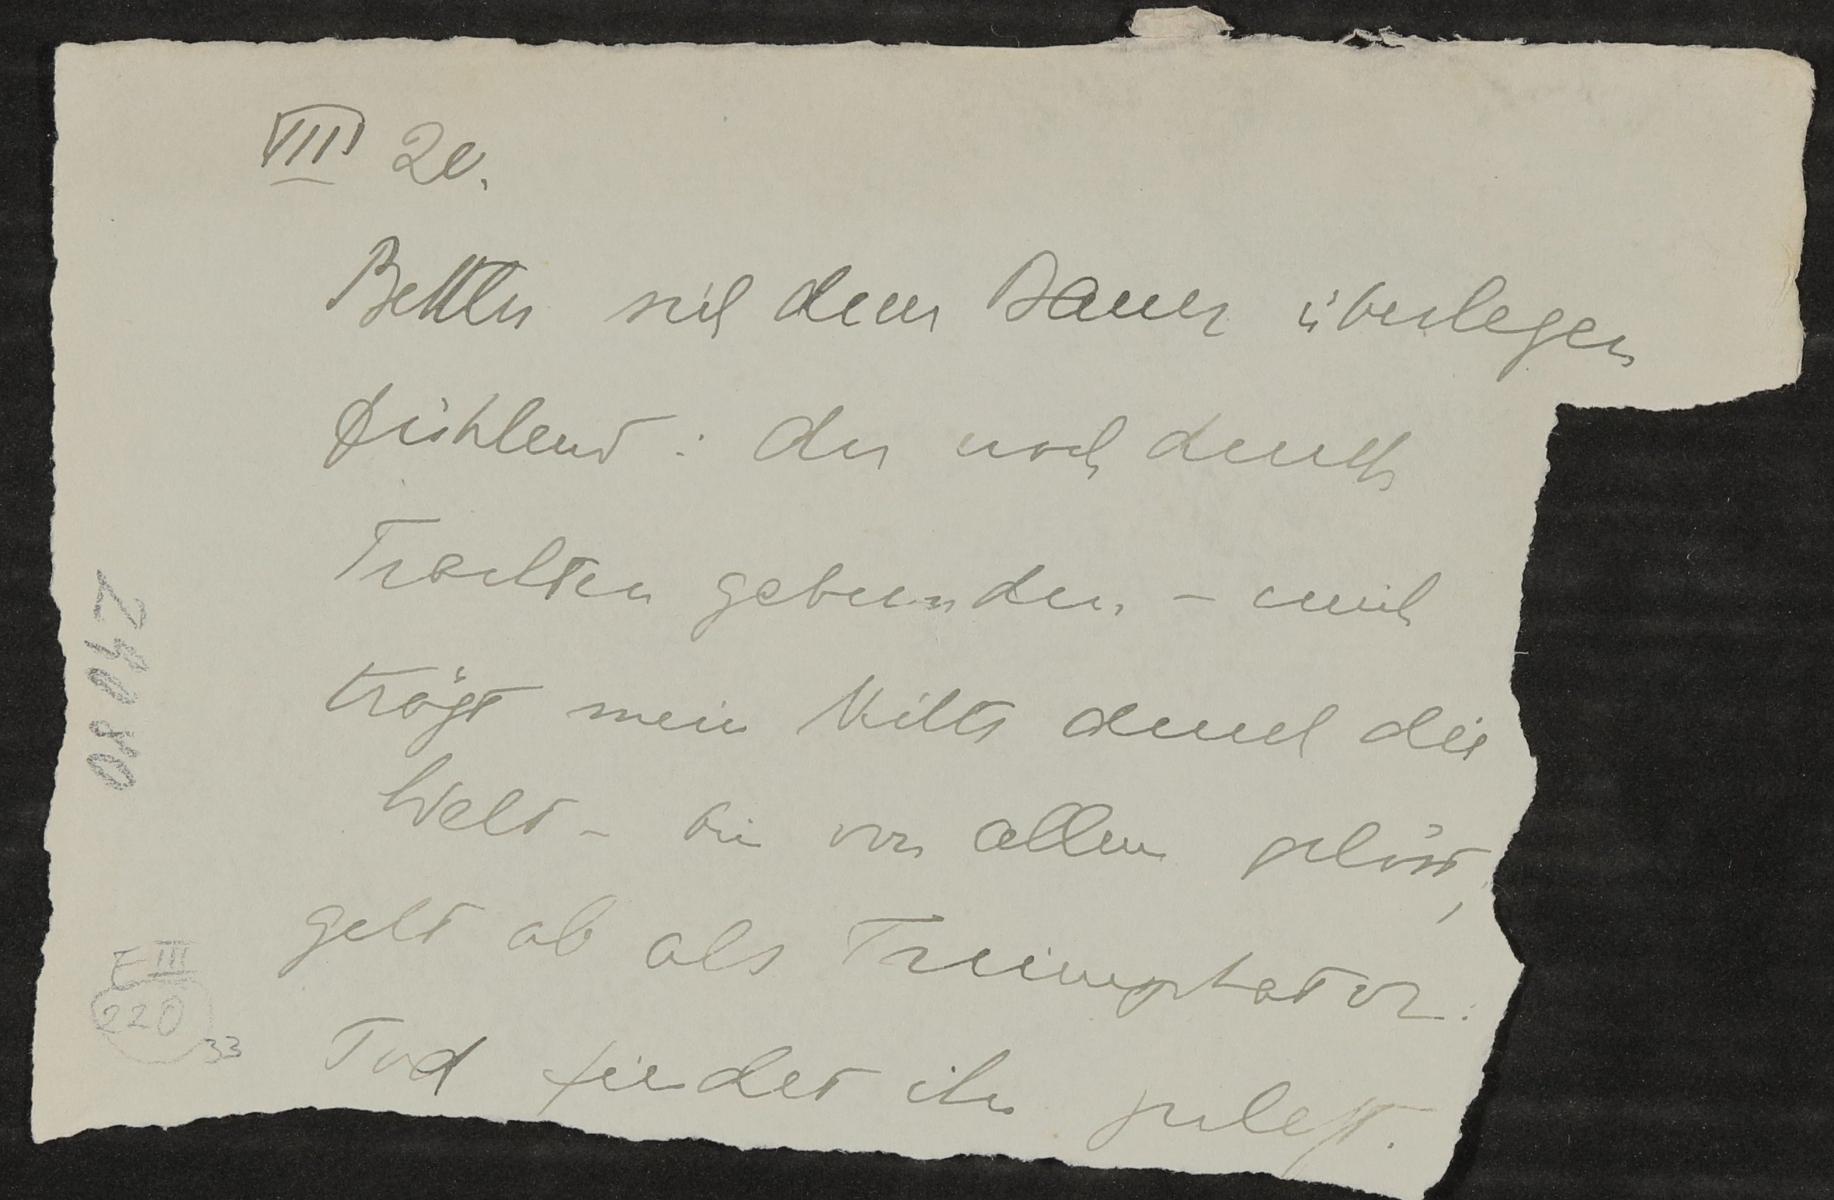 VIII 20.
Bettler sich dem Bauer überlegen
fühlend: der noch durch
Trachten gebunden, – mich
trägt mein Wille durch die
Welt – bin von allem gelöst,
geht ab als Triumphator.
Tod findet ihn zuletzt.
24080
E III
220
33